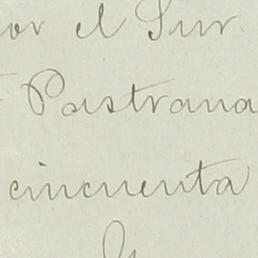 or el Sur
Pastrana
cincuenta